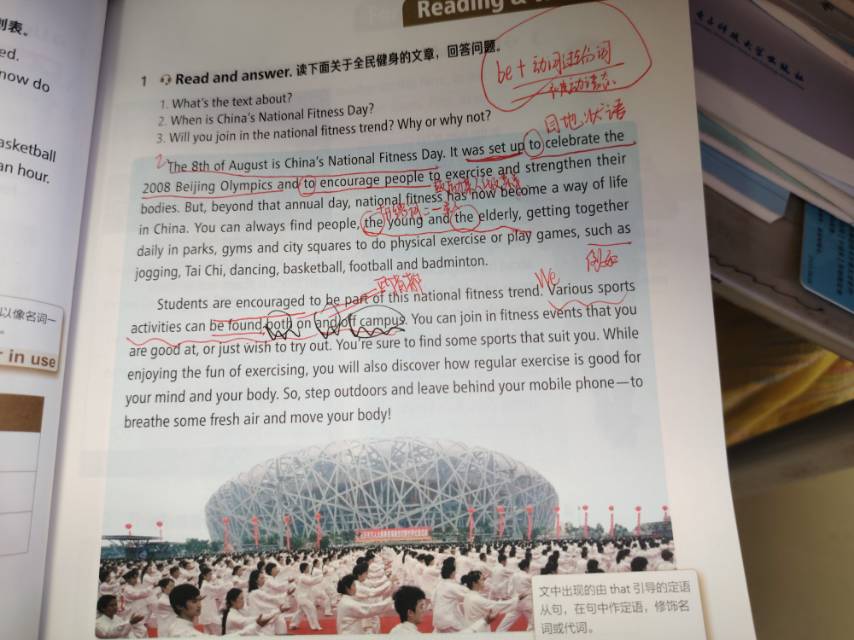 Reading &
列表。
ed.
now do
asketball
an hour.
以像名词一
r in use
1 Read and answer. 读下面关于全民健身的文章，回答问题。
be + 动词过去分词
1. What's the text about?
2. When is China's National Fitness Day?
3. Will you join in the national fitness trend? Why or why not?
目地状语
2
The 8th of August is China's National Fitness Day. It was set up to celebrate the
2008 Beijing Olympics and to encourage people to exercise and strengthen their
bodies. But, beyond that annual day, national fitness has now become a way of life
in China. You can always find people, the young and the elderly, getting together
daily in parks, gyms and city squares to do physical exercise or play games, such as
例如
jogging, Tai Chi, dancing, basketball, football and badminton.
We
Students are encouraged to be part of this national fitness trend. Various sports
activities can be found both on and off campus. You can join in fitness events that you
are good at, or just wish to try out. You're sure to find some sports that suit you. While
enjoying the fun of exercising, you will also discover how regular exercise is good for
your mind and your body. So, step outdoors and leave behind your mobile phone—to
breathe some fresh air and move your body!
文中出现的由 that 引导的定语
从句，在句中作定语，修饰名
词或代词。
电子科技大学出版社